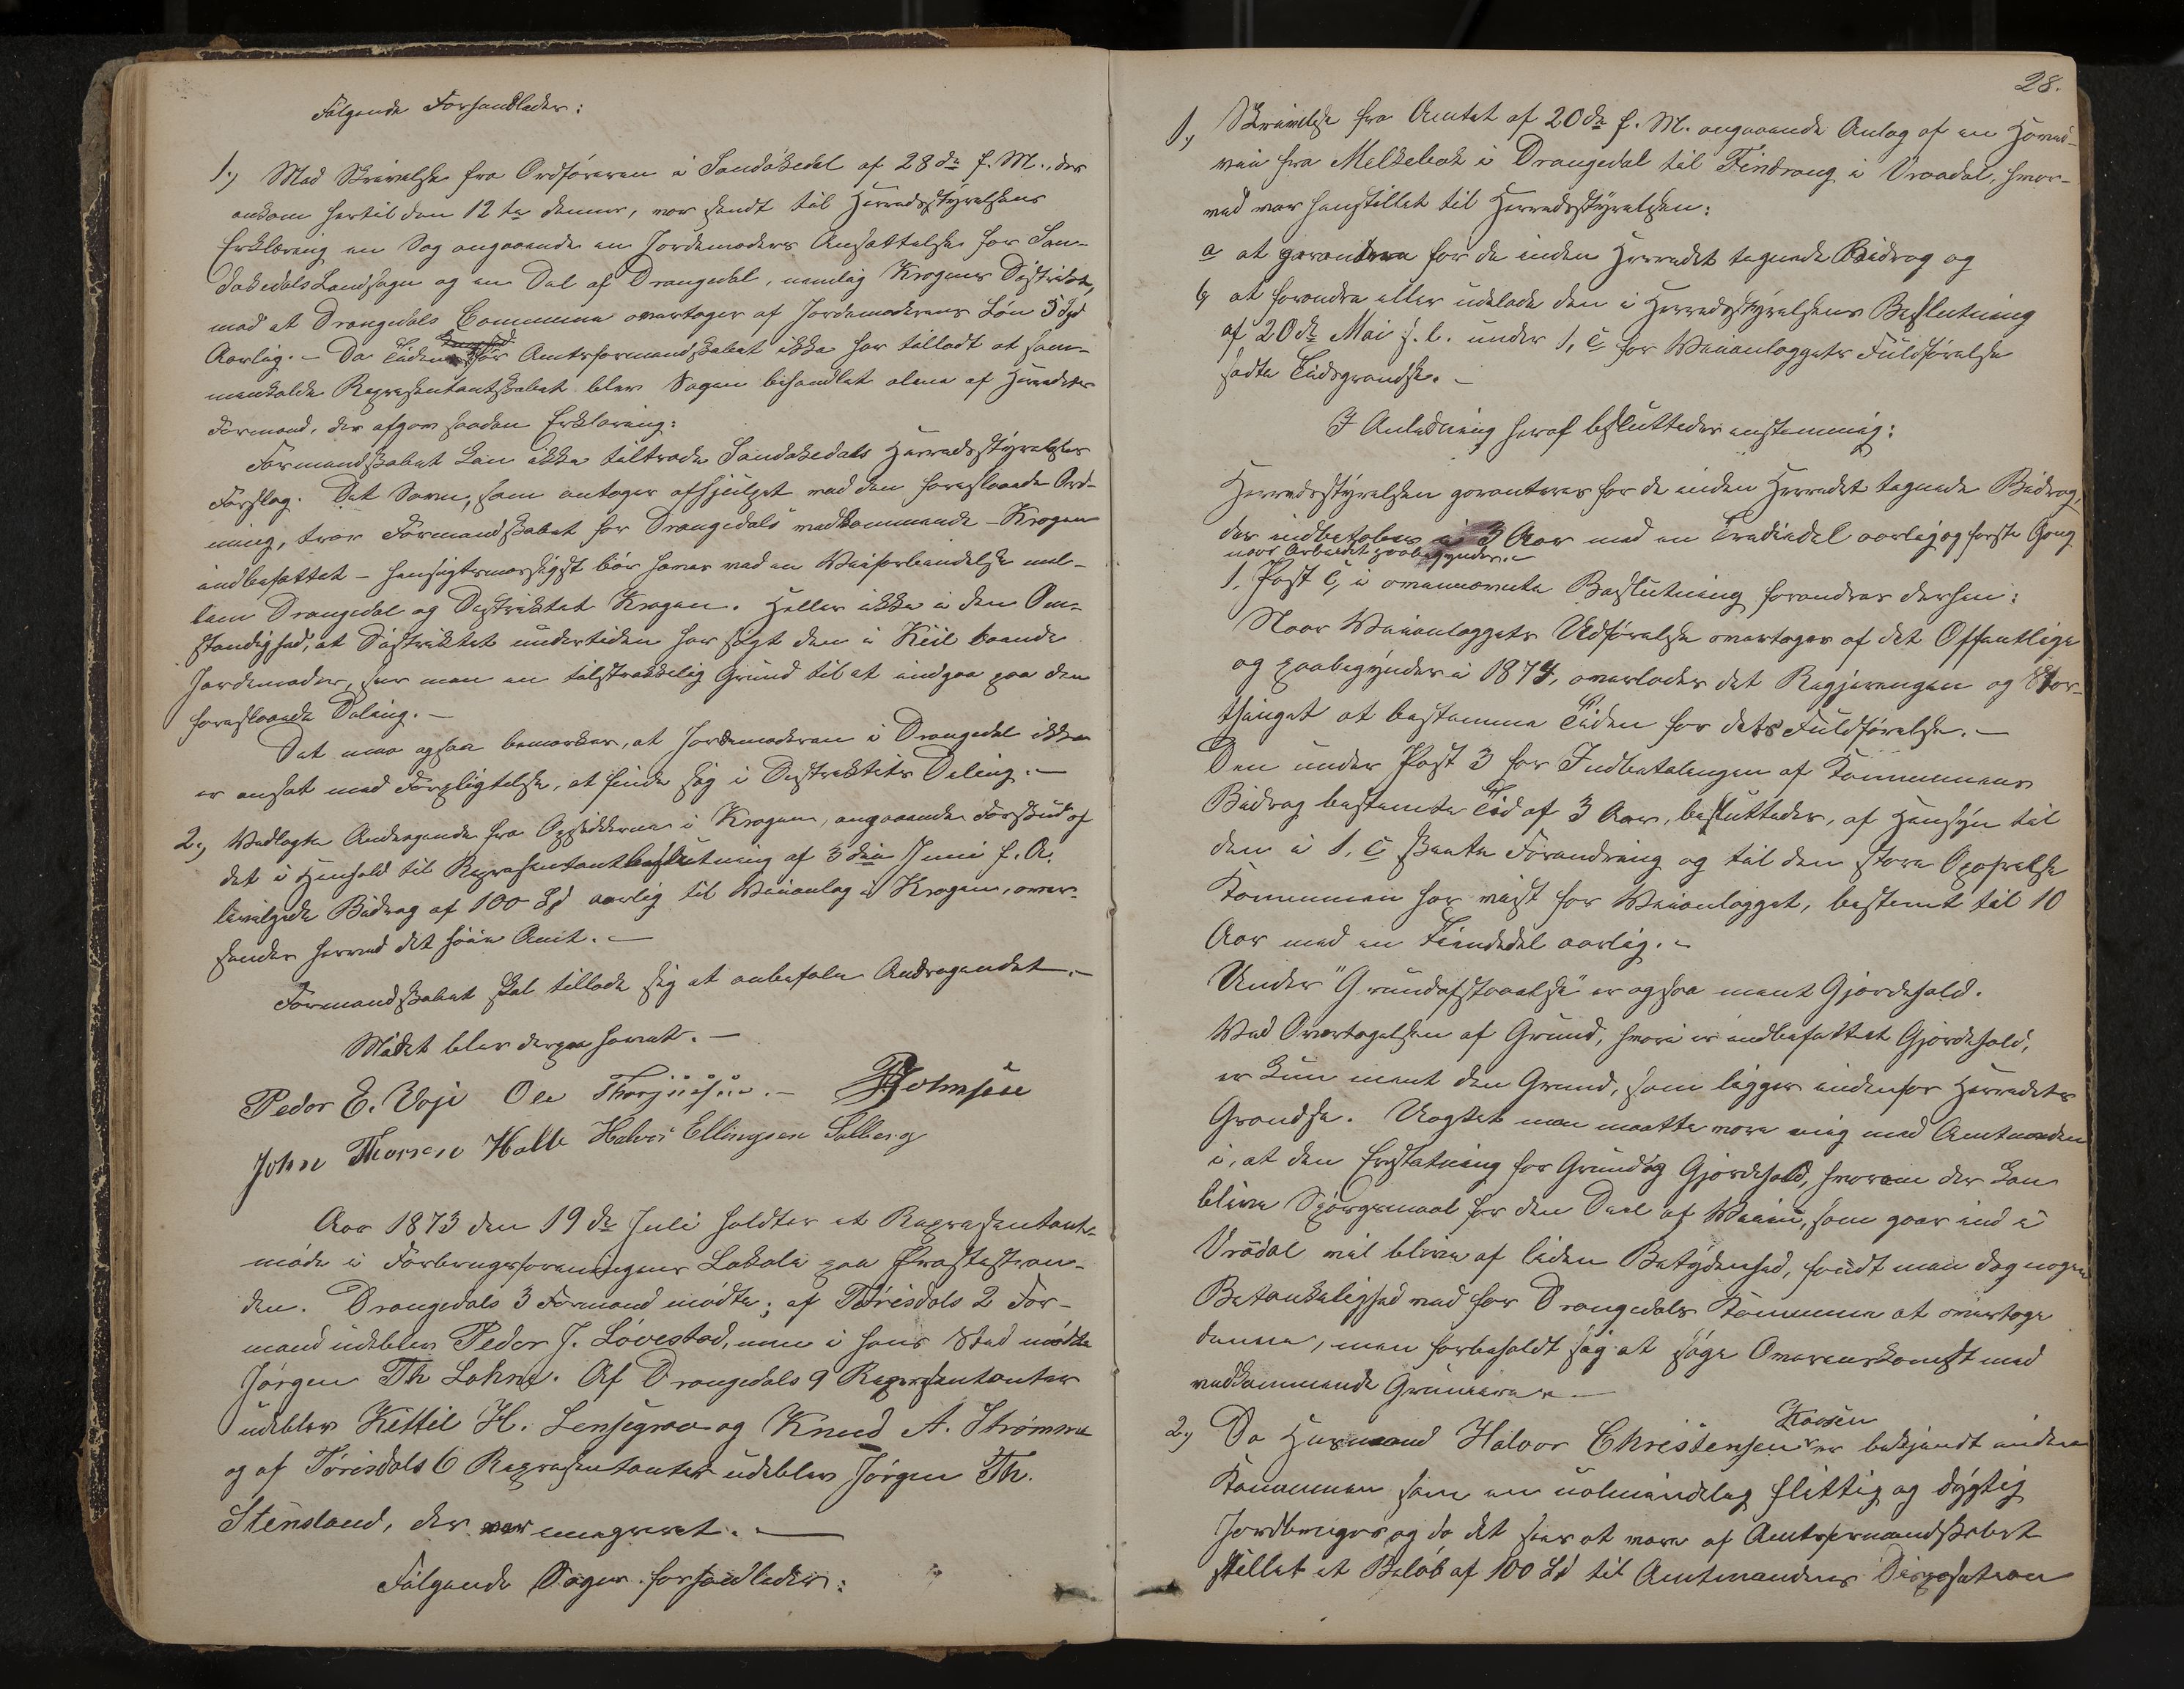 Følgende Forhandledes:
1., Med Skrivelse fra Ordføreren i Sandøkedal af 28de f. M., der
ankom hertil den 12te dennes, var sendt til Herredsstyrelsens
Erklæring en Sag angaaende en Jordemoders Ansættelse for San-
døkedals Landsogn og en Del af Drangedal, nemlig Krogens Distrikt,
mod at Drangedals Commune overtager af Jordemoderens Løn 5 Spd
Aarlig. – Da Tiden før Amtsformandskabet ikke har tilladt at sam-
menkalde Repræsentantskabet blev Sagen behandlet alene af Herredets
Formænd, der afgav saadan Erklæring:
Formandskabet kan ikke tiltræde Sandøkedals Herredsstyrelses
Forslag. Det Savn, som antages afhjulpet ved den foreslaaede Ord-
ning, tror Formandskabet for Drangedals vedkommende – Krogen
indbefattet – hensigtsmæssigst bør hæves ved en Veiforbindelse mel-
lem Drangedal og Distriktet Krogen. Heller ikke i den Om-
stændighed, at Distriktet undertiden har søgt den i Kiil boende
Jordemoder, ser man en tilstrækkelig Grund til at indgaa paa den
foreslaaede Deling. –
Det maa ogsaa bemærkes, at Jordemoderen i Drangedal ikke
er ansat med Forpligtelse, at finde sig i Distriktets Deling. –
2., Vedlagte Andragende fra Opsidderne i Krogen, angaaende Forskud af
det i Henhold til Repræsentantbeslutning af 3die Juni f. A.
bevilgede Bidrag af 100 Spd aarlig til Veianlæg i Krogen, over-
sendes herved det høie Amt. –
Formandskabet skal tillade sig at anbefale Andragendet. –
Mødet blev derpaa hævet. –
Peder E. Voje Ole Thorjussen. – Johnsen
John Thorsen Holte Halvor Ellingsen Solberg
Aar 1873 den 19de Juli holdtes et Repræsentant-
møde i Forbrugsforeningens Lokale paa Præstestran-
den. Drangedals 3 Formænd mødte; af Tørisdals 2 For-
mænd udeblev Peder J. Løvestad, men i hans Sted mødte
Jørgen Th Lohne. Af Drangedals 9 Repræsentanter
udeblev Kittil H. Lensegrav og Knud A. Strømme
og af Tørisdals 6 Repræsentanter udeblev Jørgen Th.
Stensland, der var emigreret. –
Følgende Sager forhandledes:
28.
1., Skrivelse fra Amtet af 20de f. M. angaaende Anlæg af en Hoved-
vei fra Melkebæk i Drangedal til Findrang i Vraadal, hvor-
ved var henstillet til Herredsstyrelsen:
a at garantere for de inden Herredet tegnede Bidrag og
b at forandre eller udelade den i Herredsstyrelsens Beslutning
af 20de Mai s. l. under 1, c, for Veianlæggets Fuldførelse
satte Tidsgrændse. –
I Anledning heraf besluttedes enstemmig:
Herredsstyrelsen garanterer for de inden Herredet tegnede Bidrag,
der indbetales i 3 Aar med en Trediedel aarlig og første Gang
naar Arbeidet paabegyndes. –
1, Post c, i ovennævnte Beslutning forandres derhen:
Naar Veianlæggets Udførelse overtages af det Offentlige
og paabegyndes i 1874, overlades det Regjeringen og Stor-
thinget at bestemme Tiden for dets Fuldførelse. –
Den under Post 3 for Indbetalingen af Kommunens
Bidrag bestemte Tid af 3 Aar, besluttedes, af Hensyn til
den i 1, c skeete Forandring og til den store Opofrelse
Kommunen har vist for Veianlægget, bestemt til 10
Aar med en Tiendedel aarlig. –
Under "Grundafstaaelse" er ogsaa ment Gjærdehold.
Ved Overtagelsen af Grund, hvori er indbefattet Gjærdehold,
er kun ment den Grund, som ligger indenfor Herredets
Grændse. Uagtet man maatte være enig med Amtmanden
i, at den Erstatning for Grund og Gjærdehold, hvorom der kan
blive Spørgsmaal for den Deel af Veien, som gaar ind i
Vrådal vil blive af liden Betydenhed, fandt man dog nogen
Betænkelighed ved for Drangedals Kommune at overtage
denne, men forbeholdt sig at søge Overenskomst med
vedkommende Grundeiere. –
2., Da Husmand Halvor Christensen Kåsen er bekjendt inden
Kommunen som en ualmindelig flittig og dygtig
Jordbruger og da det skal være af Amtsformandskabet
stillet et Beløb af 100 Spd til Amtmandens Disposition